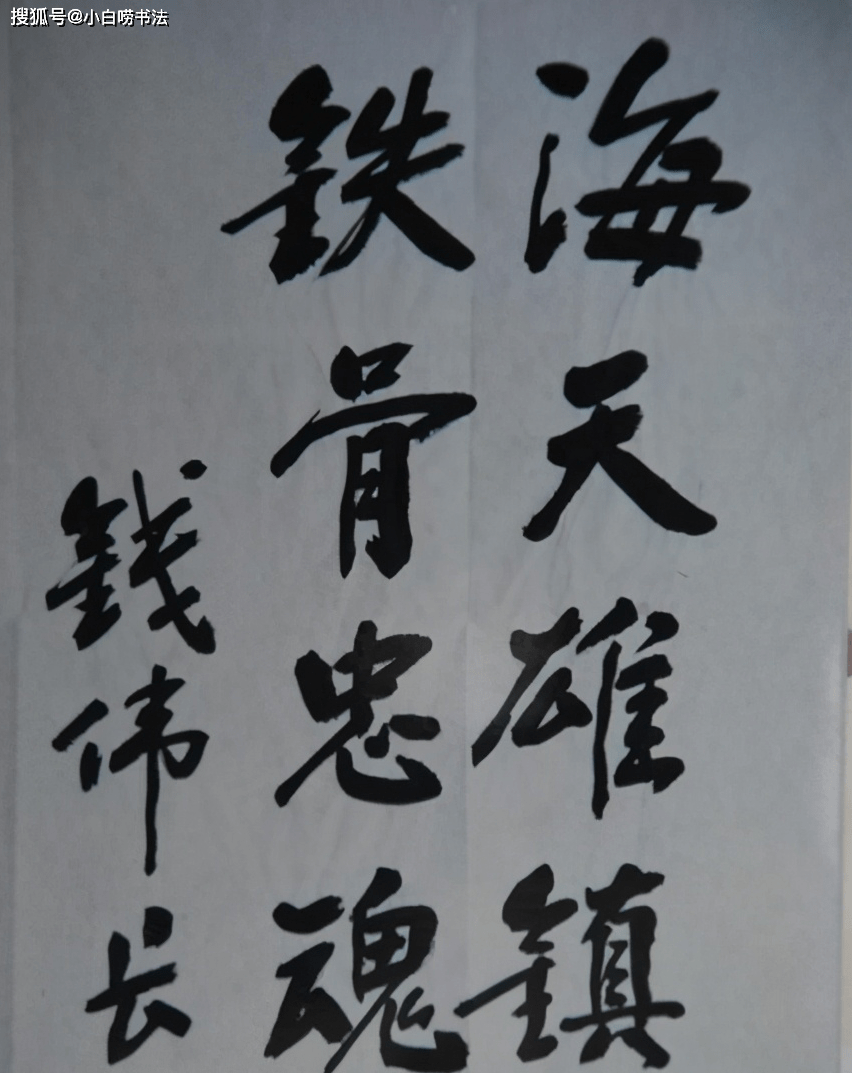 搜狐号@小白唠书法
海天雄鎮
鉄骨忠魂
錢伟长